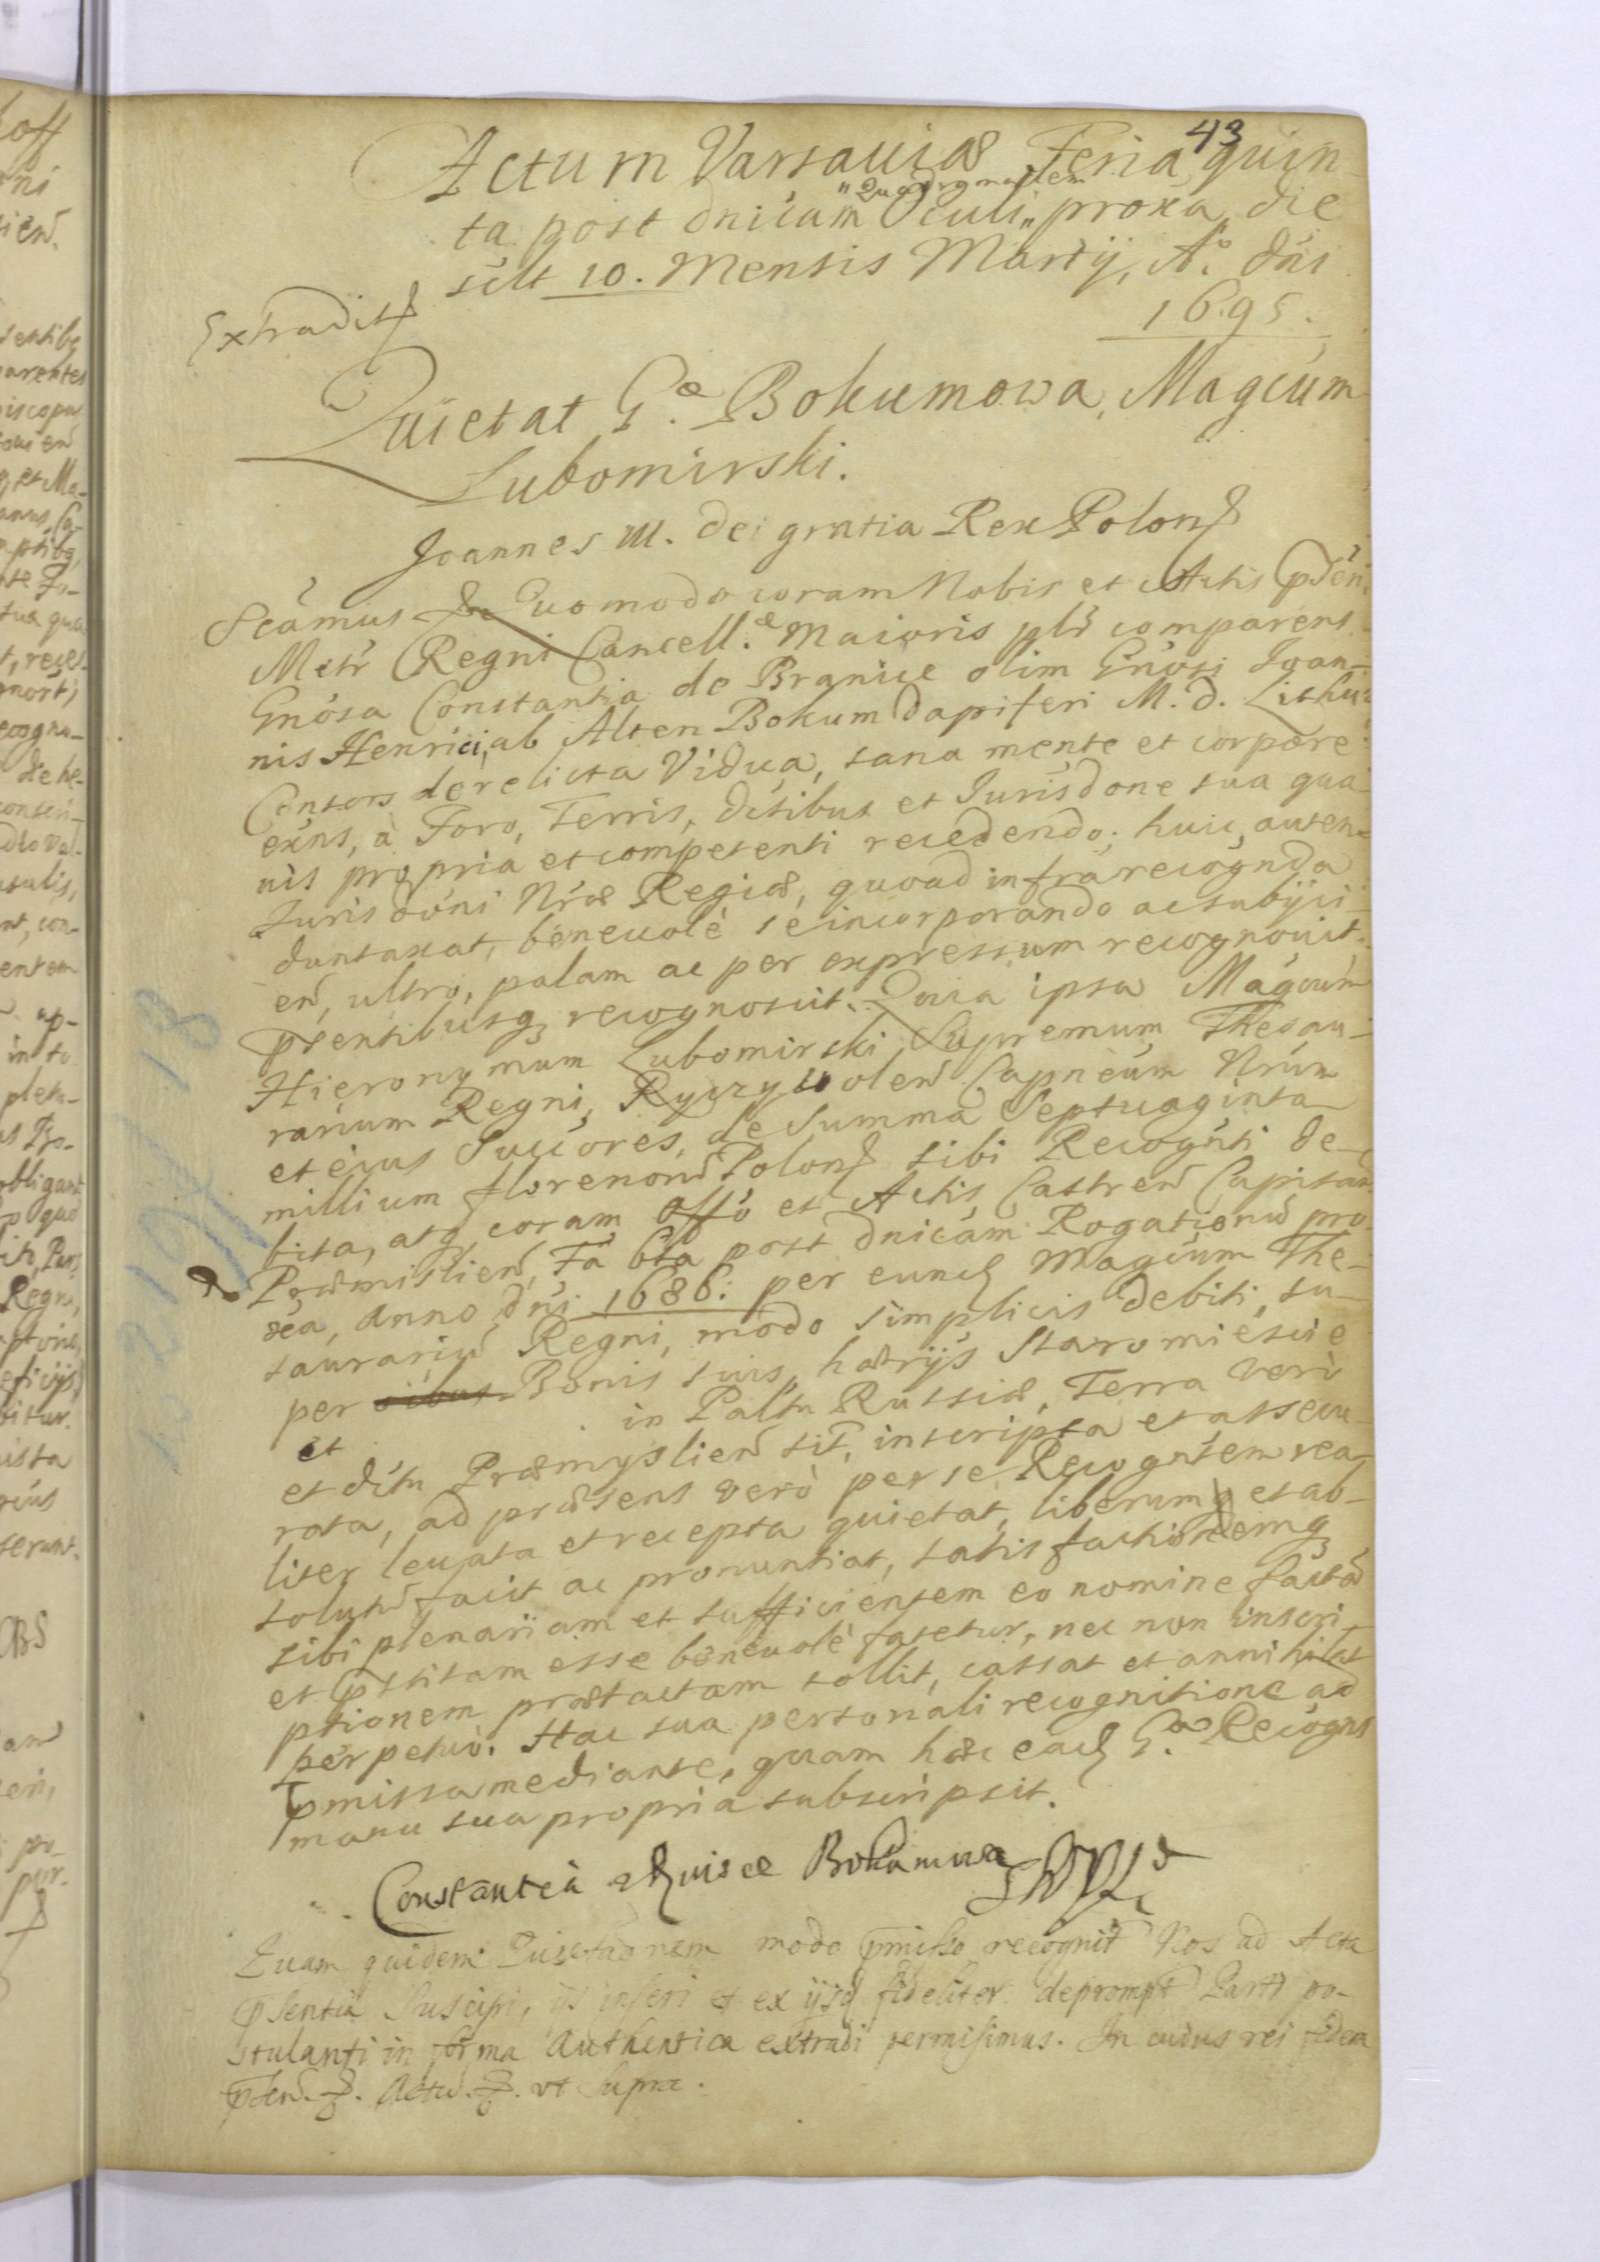 43
Actum Varsaviæ Feria quin-
ta post dnicam "Quadragmalem Oculi" proxa die
silt 10. Mensis Martij, A.° dni
1695.
Extradit
Quietat G.æ Bokumowa, Magcum
Lubomirski.
Joannes III. dei gratia Rex Polon
Scamus &c Quomodo coram Nobis et Actis pden.
Metr Regni Cancell.æ Maioris plr comparens
Gnosa Constantia de Branice olim Gnosi Joan-
nis Henrici, ab Alten Bokum dapiferi M. D. Lithu:
Consors derelicta Vidua, sana mente et corpore
exns, a Foro, Terris, dctibus et Jurisdone sua qua-
uis propria et competenti recedendo; huic, autem
Jurisdoni Nræ Regiæ, quoad infra recognda
duntaxat, beneuolè se incorporando ac subijci-
en, ultro, palam ac per expressum recognouit.
psentibusq recognoscit. Quia ipsa Magcum
Hieronymum Lubomirski, Supremum Thesau-
rarium Regni, Ryczywolen Capneum Nrum
et eius Succores, de Summa Septuaginta
millium florenorū Polon sibi Recognti de-
bita, atq coram Offo et Actis Castren Capitan
Præmislien, Fa 6ta post dnicam Rogationū pro-
xea, Anno dni 1686: per eund Magcum The-
saurariū Regni, modo simplicis debiti, su-
per oibus Bonis suis, hærijs Staromiescie
et in Paltu Russiæ, Terra verò
et dictu Præmyslien sit, inscripta et assecu-
rata, ad præsens verò per se Recogntem rea-
liter leuata et recepta quietat, liberumq et ab-
solutū facit ac pronuntiat, satisfactionemq
sibi plenariam et sufficientem eo nomine factā
et pstitam esse beneuolè fatetur, nec non inscri-
ptionem prætactam tollit, cassat et annihilat
perpetuò. Hac sua personali recognitione ad
pmissa mediante, quam hæc ead G.a Recogns
manu sua propria subscripsit.
Constantia Bokumowa
Quam quidem Quietaonem modo pmisso recognit Nos ad Acta
psentia Suscipi, ijs inseri et ex ijsd fideliter deprompt Parti po-
stulanti in forma Authentica extradi permisimus. In cuius rei fidem
pden. &. Actu. &. vt supra.